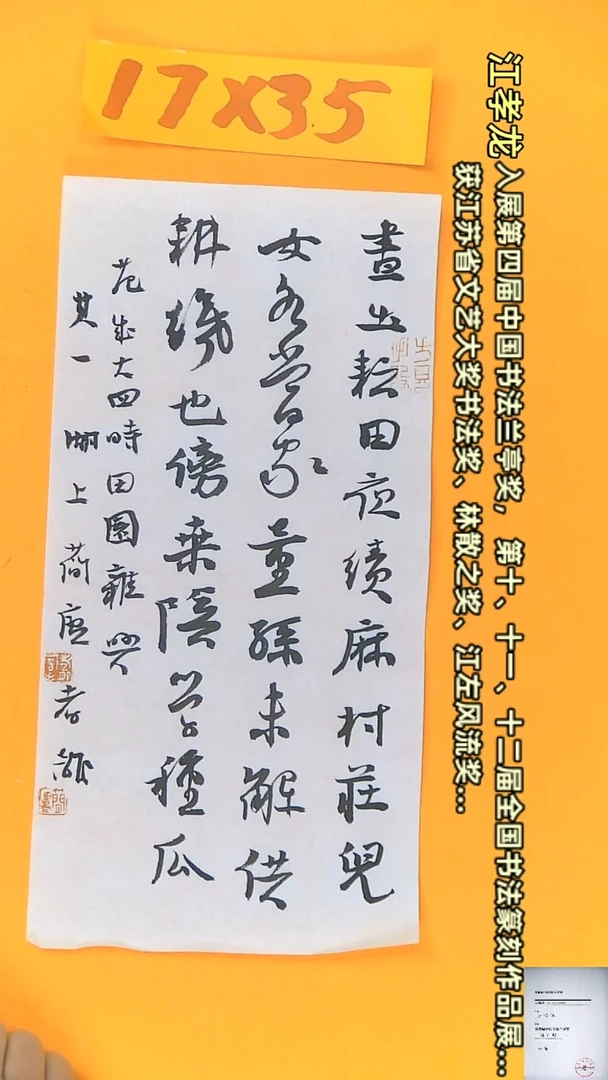 17X35
江孝龙 入展第四届中国书法兰亭奖，第十、十一、十二届全国书法篆刻作品展...
获江苏省文艺大奖书法奖、林散之奖、江左风流奖...
晝出耘田夜績麻村莊兒
女各當家童孫未解供
耕織也傍桒陰學種瓜
范成大四時田園雜興
其一 湖上簡廬孝龍